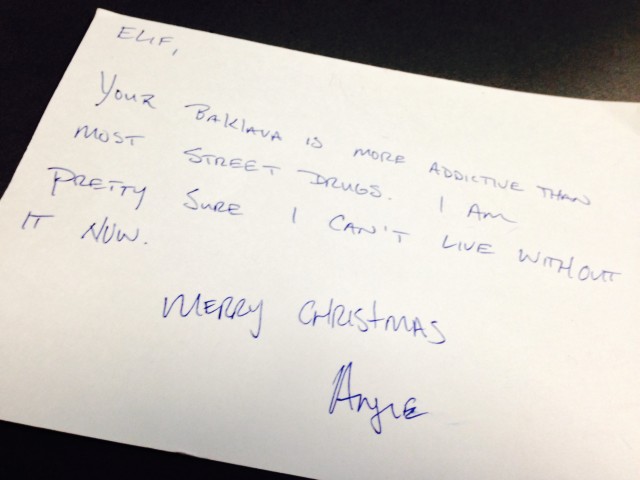 ELIF,
YOUR BAKLAVA IS MORE ADDICTIVE THAN
MOST STREET DRUGS. I AM
PRETTY SURE I CAN'T LIVE WITHOUT
IT NOW.
MERRY CHRISTMAS
Angie